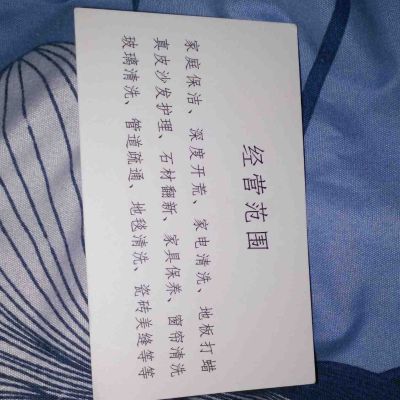 经营范围
家庭保洁、深度开荒、家电清洗、地板打蜡
真皮沙发护理、石材翻新、家具保养、窗帘清洗
玻璃清洗、管道疏通、地毯清洗、瓷砖美缝等等